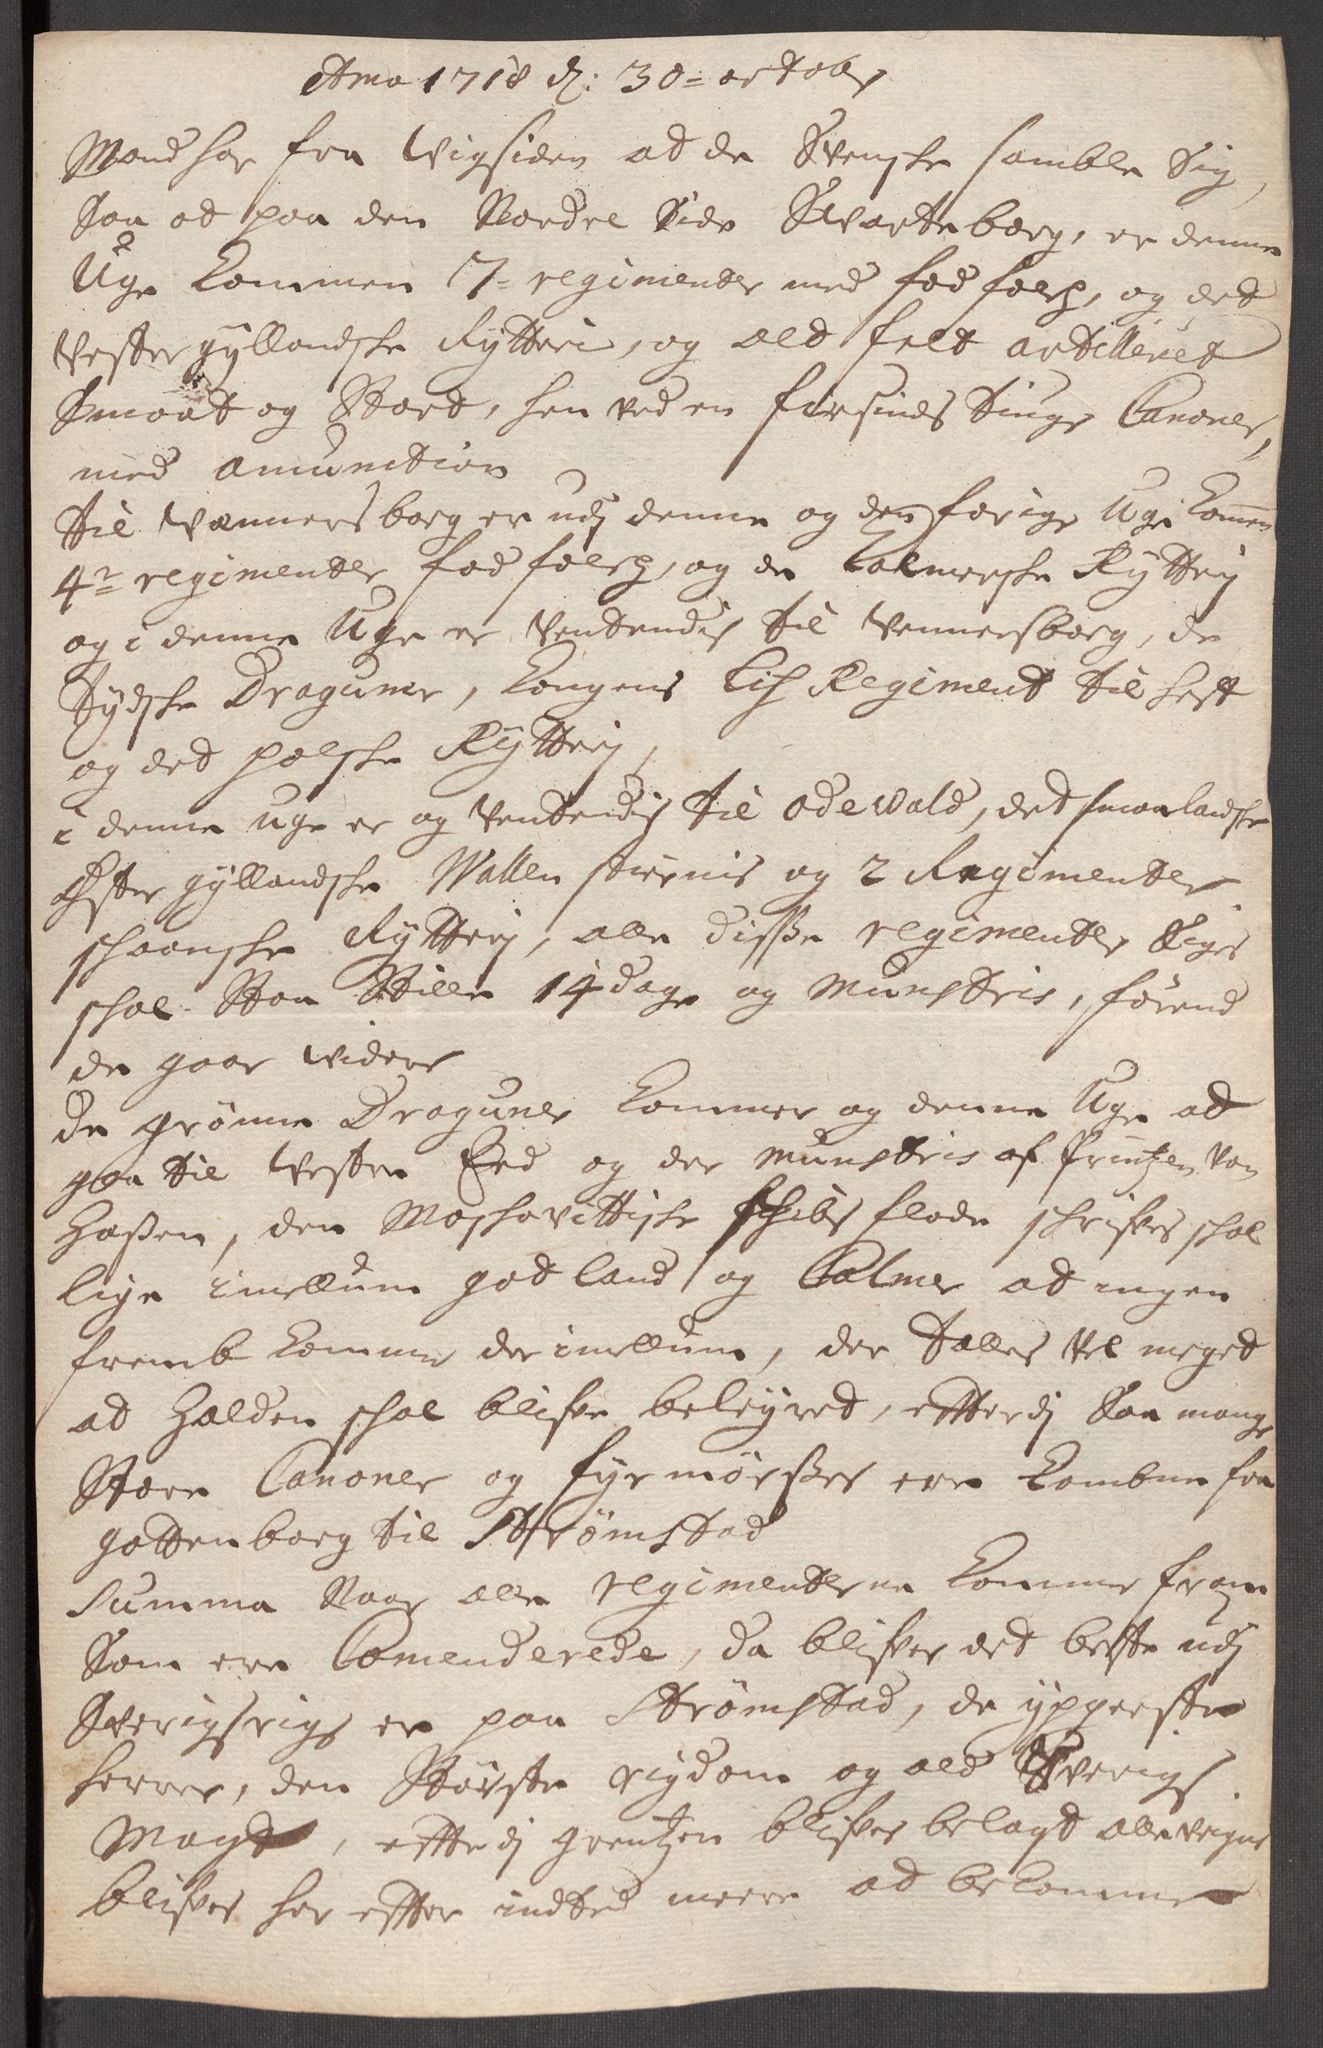 Anno 1718 d: 30= octobr
Mand har fra Wigsiden ad de Svenske samble Sig,
Saa ad paa den Nordre Side Svarteborg, er denne
Uge kommen 7= regimenter med fod folch, og det
Vestergyllandske Rytteri, og ald felt artilleriet
Smaat og Stort, hen ved en firsinds tiuge Canoner,
med amunition
til Wennersborg er udj denne og den forige Uge komen
4re regimenter fod folch, og de Calmerske Rytterj
og i denne Uge er Ventendis til Vennersborg, de
Tydske Draguner, Kongens Lif Regiment til hest
og det polske Rytterj,
i denne uge er og Ventendis til Odewald, det smaalandske
Østergyllandske Wallenstiernis og 2 Regimenter
schaanske Rytterj, alle disse regimenter Siges
schal Staa Stille 14 dage og Munstris, førend
de gaar Widere
De grønne Draguner kommer og denne Uge ad
gaa til Vester Eed og der munstris af Printzen von
Hassen, den Moschovittiske Schibs flode schrifves schal
lige imellum Godland og Calmer ad ingen
fremb komme der imellum, der talles Vel meget
ad Halden schal blifve beleyret, efterdj Saa mange
Store Canoner og fyrmørsser ere kombne fra
gottenborg til Strømstad
Summa Naar alle regimenterne kommer fram
Som ere Comenderede, da blifver det beste udj
Sverigsrige er paa Strømstad, de ypperste
herrer, den Største rigdom og ald Sverigs
Magt, efterdj grentzen blifver belagt alle veigne
blifver her efter indted meere ad bekomme